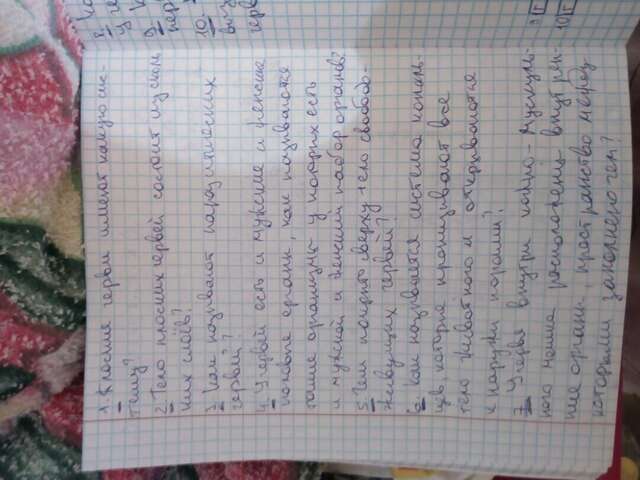 1. Плоские черви имеют какую сис-
тему?
2. Тело плоских червей состоит из сколь
ких слоёв?
3. Как называют паразитических
червей?
4. У червей есть и мужские и женские
половые органы, как называются
такие организмы у которых есть
и мужской и женский набор органов?
5. Чем покрыто сверху тело свободо-
живущих червей?
6. Как называется система каналь-
цев, которые пронизывают все
тело животного и открываются
к наружи порами?
7. У червя внутри кожно-мускуль-
ного мешка расположены внутрен-
ние органы, пространство между
которыми заполнено чем?
8. Ка
у че
9. К
чер
10.
выз
черв
9 Г
10